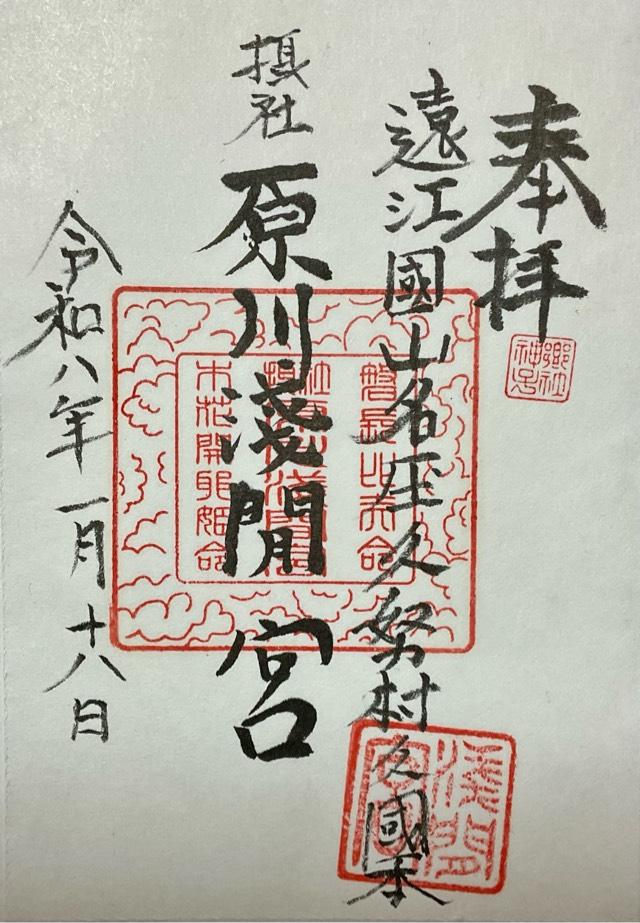 奉拝
郷社
神呂
遠江國山名庄久努村久國本
磐長比売命
摂社
原川淺間宮
木花開耶姫命
淺間
令和八年一月十八日